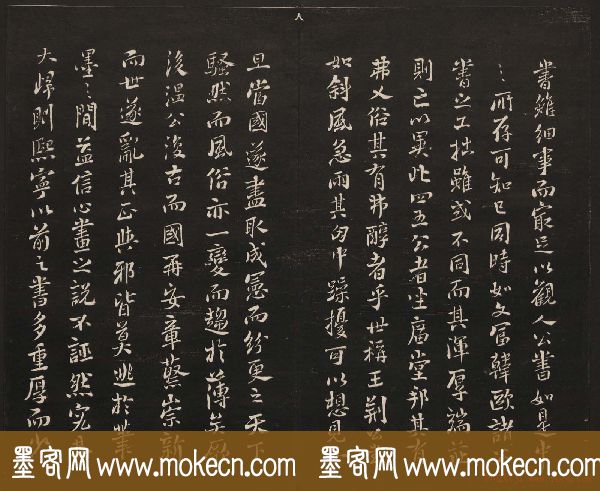 人
書雖細事而最足以觀人公書如是
所存可知已同時如文富韓歐諸
書之工拙雖或不同而其渾厚端
則亡以異此四五公者坐廣堂邦其有
弗乂俗其有弗醇者乎世稱王荊
如斜風急雨其匈中躁擾可以想見
旦當國遂盡取成憲而紛更之天下
騷然而風俗亦一變而趨於薄矣厥
後溫公復古而國再安章蔡崇新
而世遂亂其正與邪皆莫逃於筆
墨之間益信心畫之說不誣然究其
大歸則熙寧以前之書多重厚而
墨客网 www.mokecn.com
墨客网 www.mokecn.com